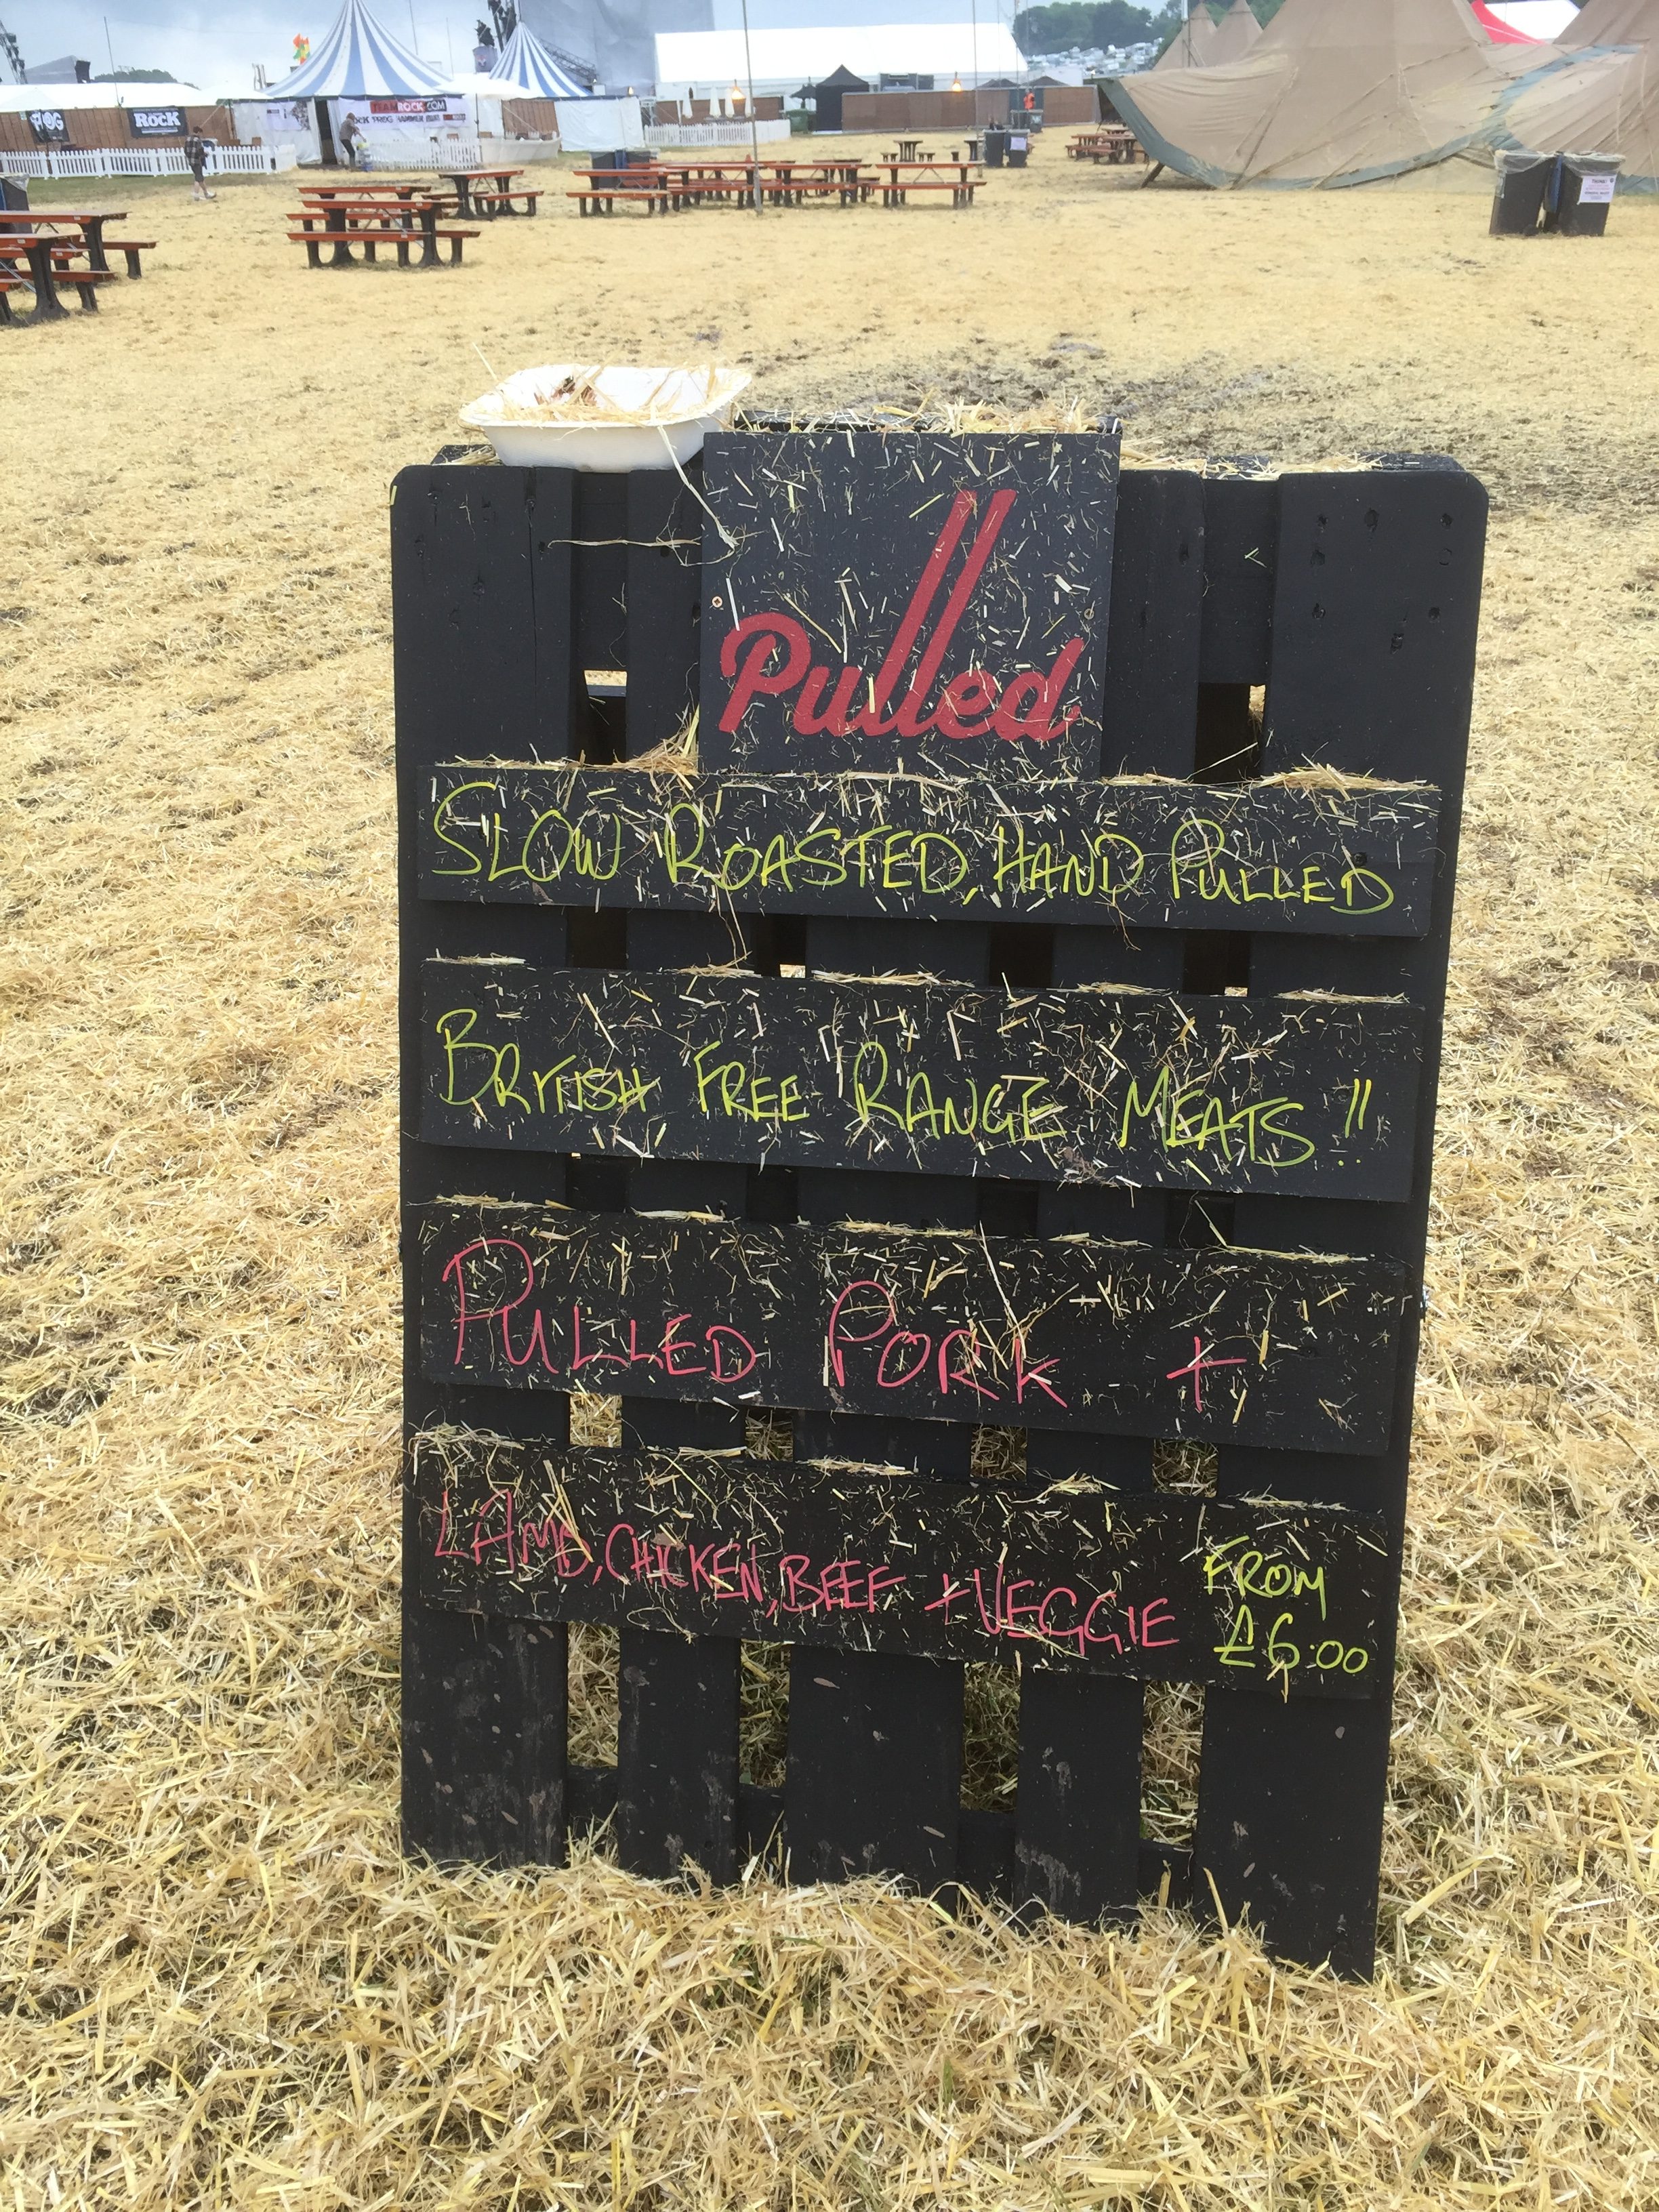 PROG
CLASSIC ROCK
TEAMROCK.COM
Pulled
SLOW ROASTED, HAND PULLED
BRITISH FREE RANGE MEATS !!
PULLED PORK +
LAMB, CHICKEN, BEEF + VEGGIE
FROM
£6:00